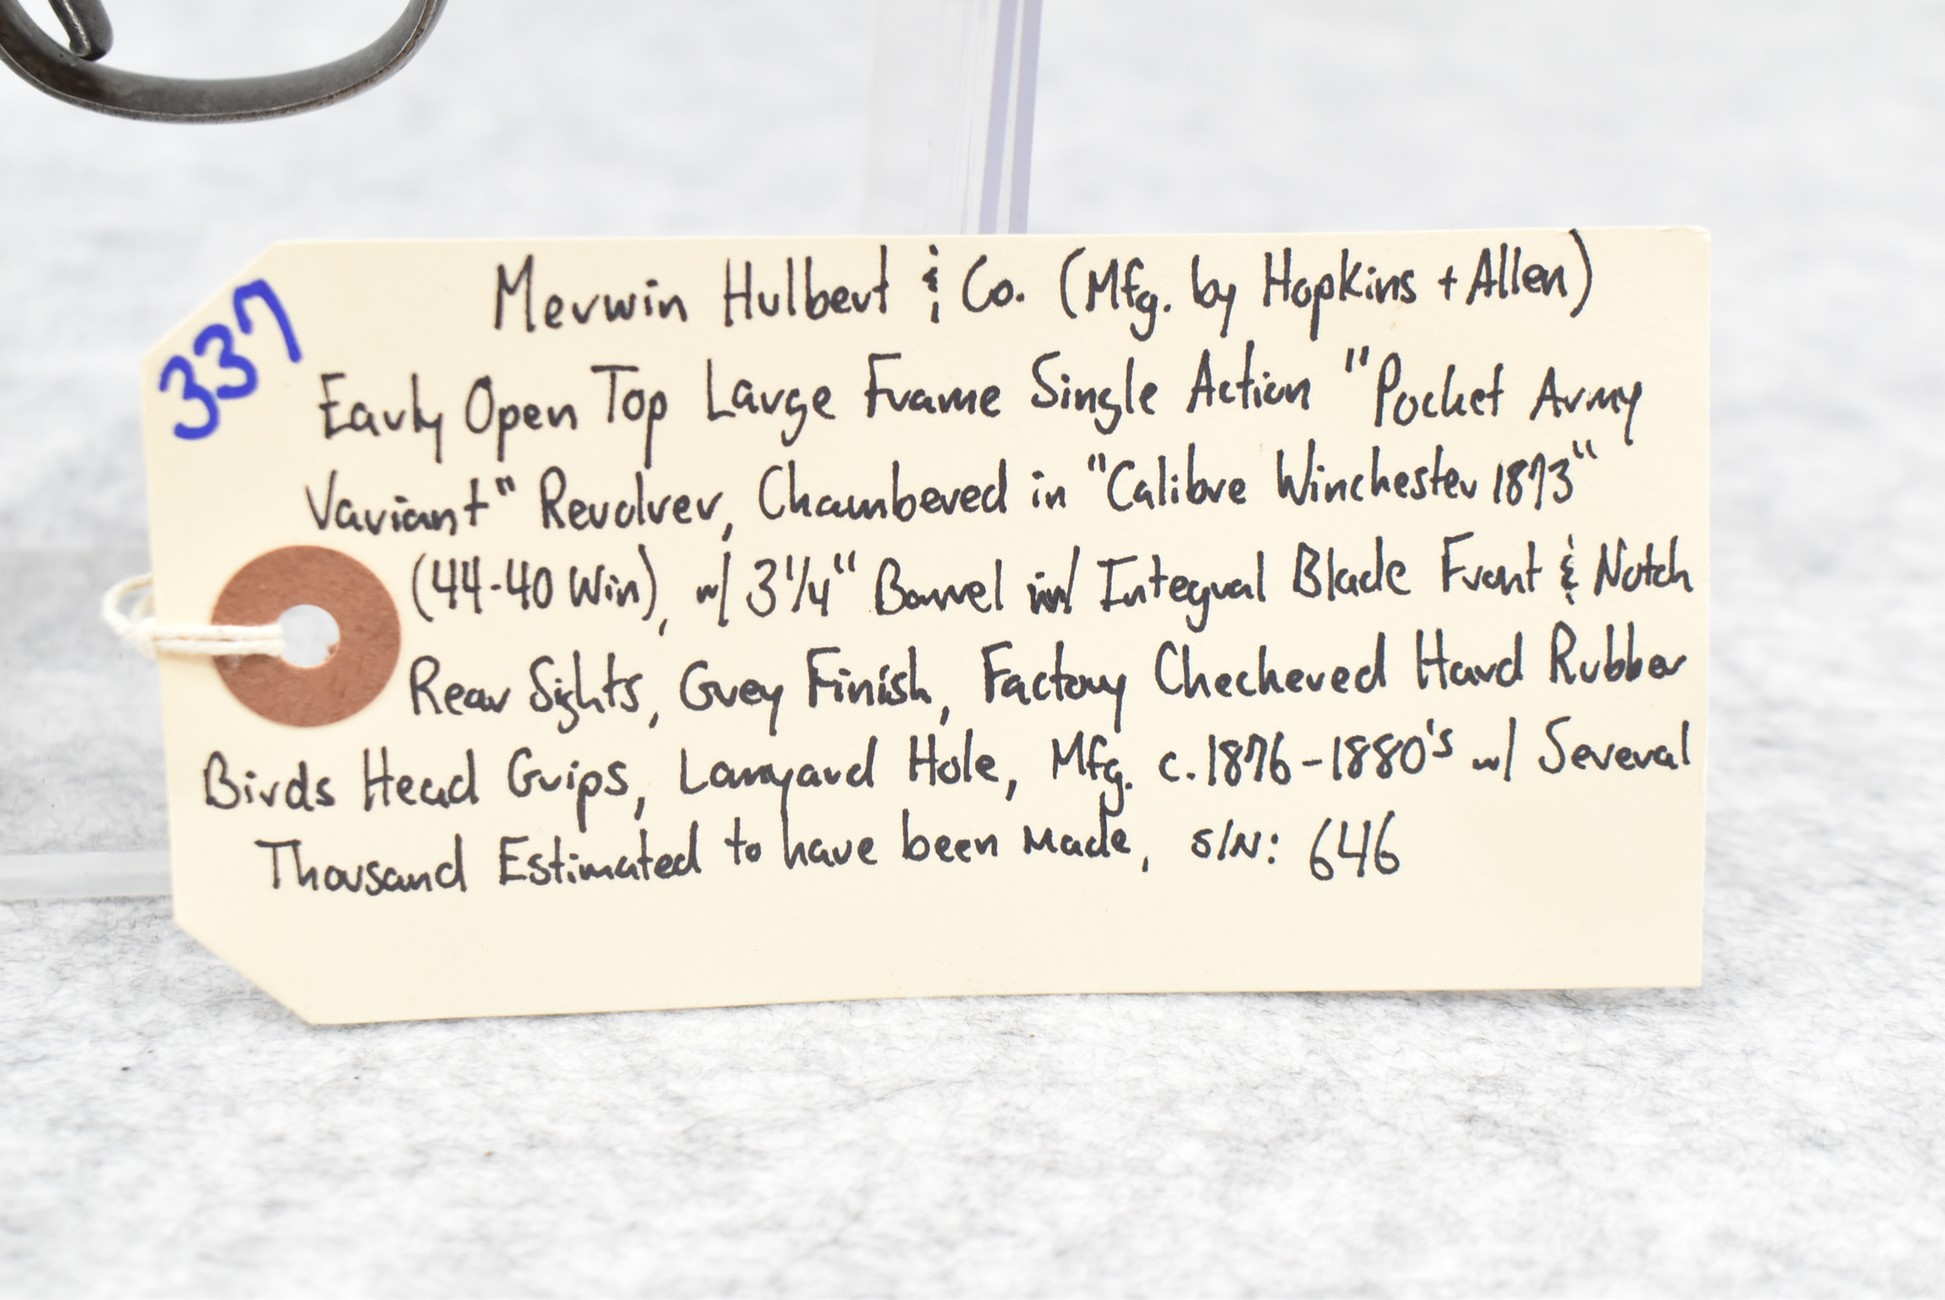 337
Merwin Hulbert & Co. (Mfg. by Hopkins + Allen)
Early Open Top Large Frame Single Action "Pocket Army
Variant" Revolver, Chambered in "Calibre Winchester 1873"
(44-40 Win), w/ 3 1/4" Barrel w/ Integral Blade Front & Notch
Rear Sights, Grey Finish, Factory Checkered Hard Rubber
Birds Head Grips, Lanyard Hole, Mfg. c.1876-1880's w/ Several
Thousand Estimated to have been made, S/N: 646